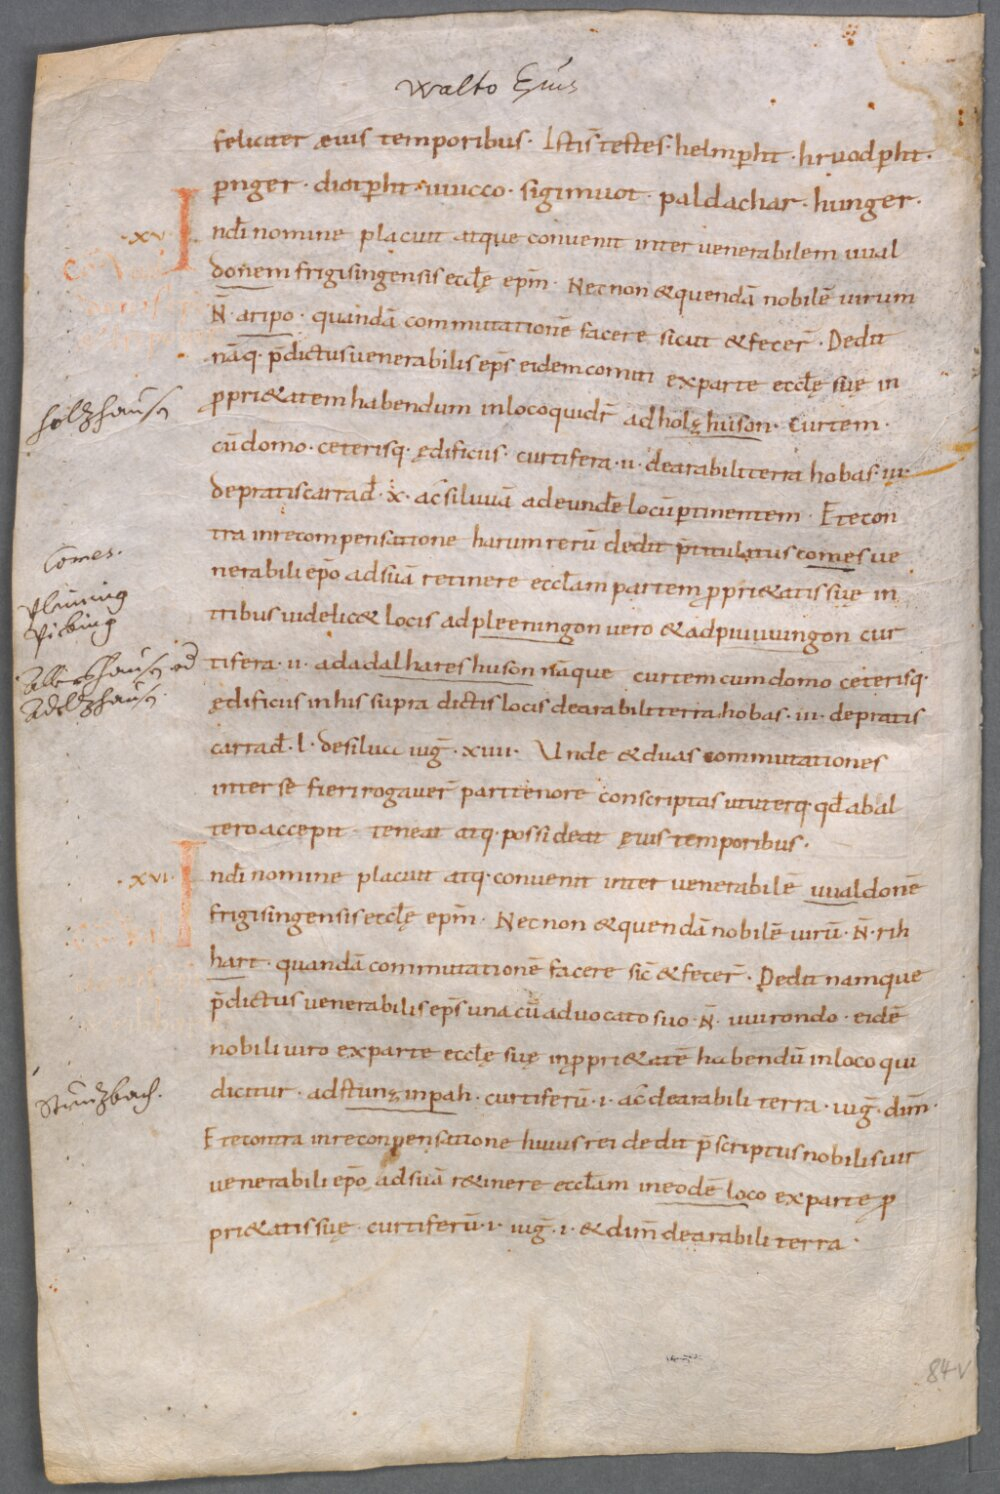 Walto Epũs
feliciter ęuis temporibus · Istis̃ testes · helmp̱ht · hruodp̱ht ·
p̱nger · diotp̱ht · uuicco · sigimuot · paldachar · hunger ·
·XV· Indĩ nomine placuit atque conuenit inter uenerabilem uual
donem frigisingensis eccłę epm̃ · Necnon &quendã nobilẽ uirum
Ñ · aripo · quandã commutationẽ facere sicut &fecer̃ · Dedit
nãq· p̃dictus uenerabilis ep̃s eidem comiti exparte eccłę suę in
ꝓpri&atem habendum inloco quidr̃ ad holęhuson · Curtem ·
cũ domo · ceterisq· ędificiis · curtifera · ii · dearabili terra hobas · iii ·
depratis carrad̃ · x · ac̃ siluuã adeund̃e locũ p̱tinentem · Etecon
tra inrecompensatione harum rerũ dedit p̃titulatus comes ue
nerabili ep̃o adsuã retinere eccłam partem ꝓpri&atis suę in
tribus uidelic& locis ad pleeningon uero &ad piuuuingon cur
tifera · ii · ad adalhareshuson nãque curtem cum domo ceterisq·
ędificiis inhis supra dictis locis dearabili terra hobas · iii · depratis
carrad̃ · l · desiluu iug̃ · xiiii · Unde &duas commutationes
inter se fieri rogauer̃ pari tenore conscriptas ut uterq· qd̃ abal
tero accepit teneat atq· possideat ęuis temporibus ·
·XVI· Indĩ nomine placuit atq· conuenit inter uenerabilẽ uualdonẽ
frigisingensis eccłę epm̃ · Necnon &quendã nobilẽ uirũ · Ñ · rih
hart · quandã commutationẽ facere sic̃ &fecer̃ · Dedit namque
p̃dictus uenerabilis ep̃s una cũ aduocato suo · Ñ · uuirondo · eidẽ
nobili uiro exparte eccłę suę inꝓpri&atẽ habendũ inloco qui
dicitur · ad stunęinpah · curtiferũ · i · ac̃ dearabili terra · iug̃ · dim̃ ·
Etecontra inreconpensatione huius rei dedit p̃scriptus nobilis uir
uenerabili ep̃o adsuã r&inere eccłam ineodẽ loco exparte ꝓ
pri&atis suę · curtiferũ · i · iug̃ · i · &dim̃ dearabili terra ·
Holtzhausen
Comes.
Pleining
Piebing
Allershausen od
Adeltzhausen
Stuntzbach.
84v